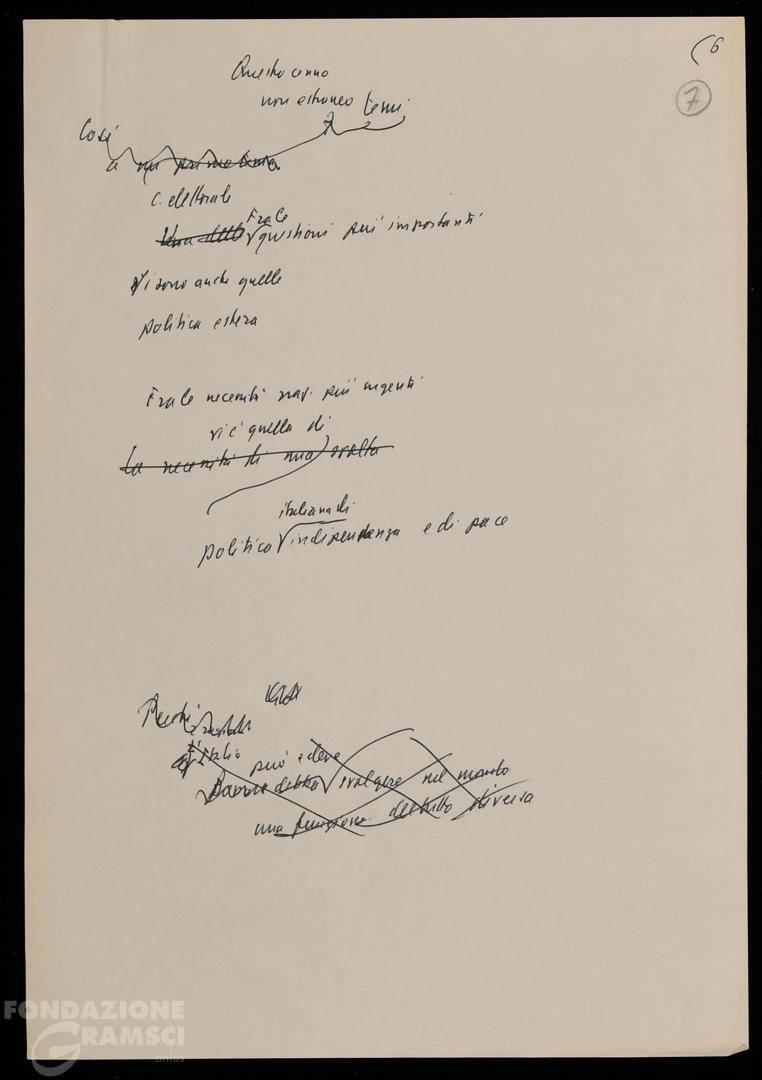 (6
7
Questo cenno
non estraneo temi
Così
C. elettorale
Fra le
Una delle questioni più importanti
Vi sono anche quelle
politica estera
Fra le necessità naz. più urgenti
vi è quella di
La necessità di una svolta
italiana di
politica indipendenza e di pace
L'Italia può e deve
debba svolgere nel mondo
una funzione del tutto diversa
FONDAZIONE
GRAMSCI
onlus